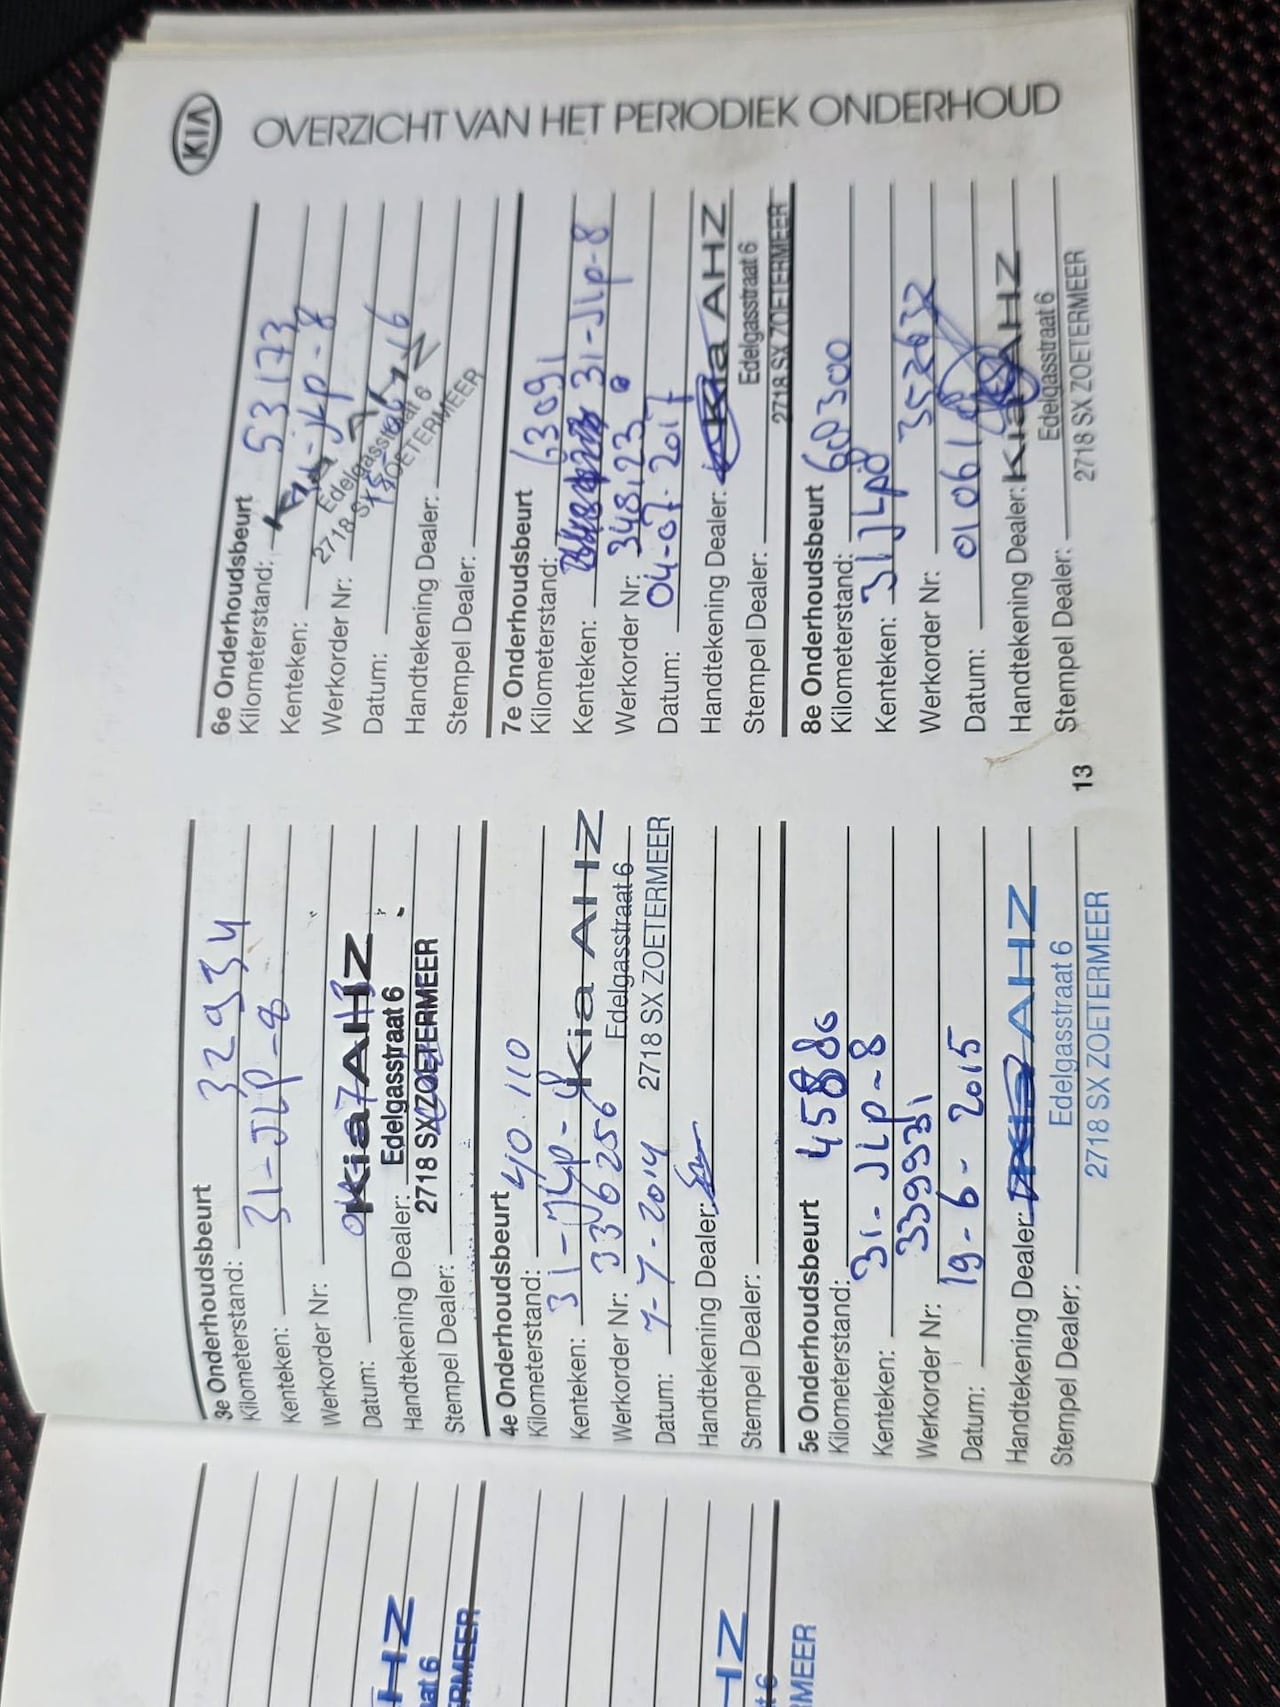 KIA
OVERZICHT VAN HET PERIODIEK ONDERHOUD
3e Onderhoudsbeurt
Kilometerstand: 32934
Kenteken: 31-JLP-8
Werkorder Nr:
Datum:
Kia AHZ
Handtekening Dealer:
Edelgasstraat 6
2718 SX ZOETERMEER
Stempel Dealer:
4e Onderhoudsbeurt
Kilometerstand: 40.110
Kenteken: 31-JLP-8
Kia AHZ
Werkorder Nr: 336256
Edelgasstraat 6
Datum: 7-7-2014
2718 SX ZOETERMEER
Handtekening Dealer:
Stempel Dealer:
5e Onderhoudsbeurt
Kilometerstand: 45886
Kenteken: 31-JLP-8
Werkorder Nr: 339931
Datum: 19-6-2015
Handtekening Dealer: Kia AHZ
Stempel Dealer:
Edelgasstraat 6
2718 SX ZOETERMEER
6e Onderhoudsbeurt
Kilometerstand: 53173
Kenteken: -JLP-8
Werkorder Nr:
Edelgasstraat 6
2718 SX ZOETERMEER
Datum:
Handtekening Dealer:
Stempel Dealer:
7e Onderhoudsbeurt
Kilometerstand:
Kenteken: 31-JLP-8
Werkorder Nr: 348123
Datum: 04-07-2017
Handtekening Dealer: Kia AHZ
Edelgasstraat 6
Stempel Dealer:
2718 SX ZOETERMEER
8e Onderhoudsbeurt
Kilometerstand:
Kenteken: 31JLP8
Werkorder Nr: 352632
Datum:
Handtekening Dealer: Kia AHZ
Edelgasstraat 6
Stempel Dealer:
2718 SX ZOETERMEER
13
HZ
aat 6
RMEER
HZ
t 6
MEER